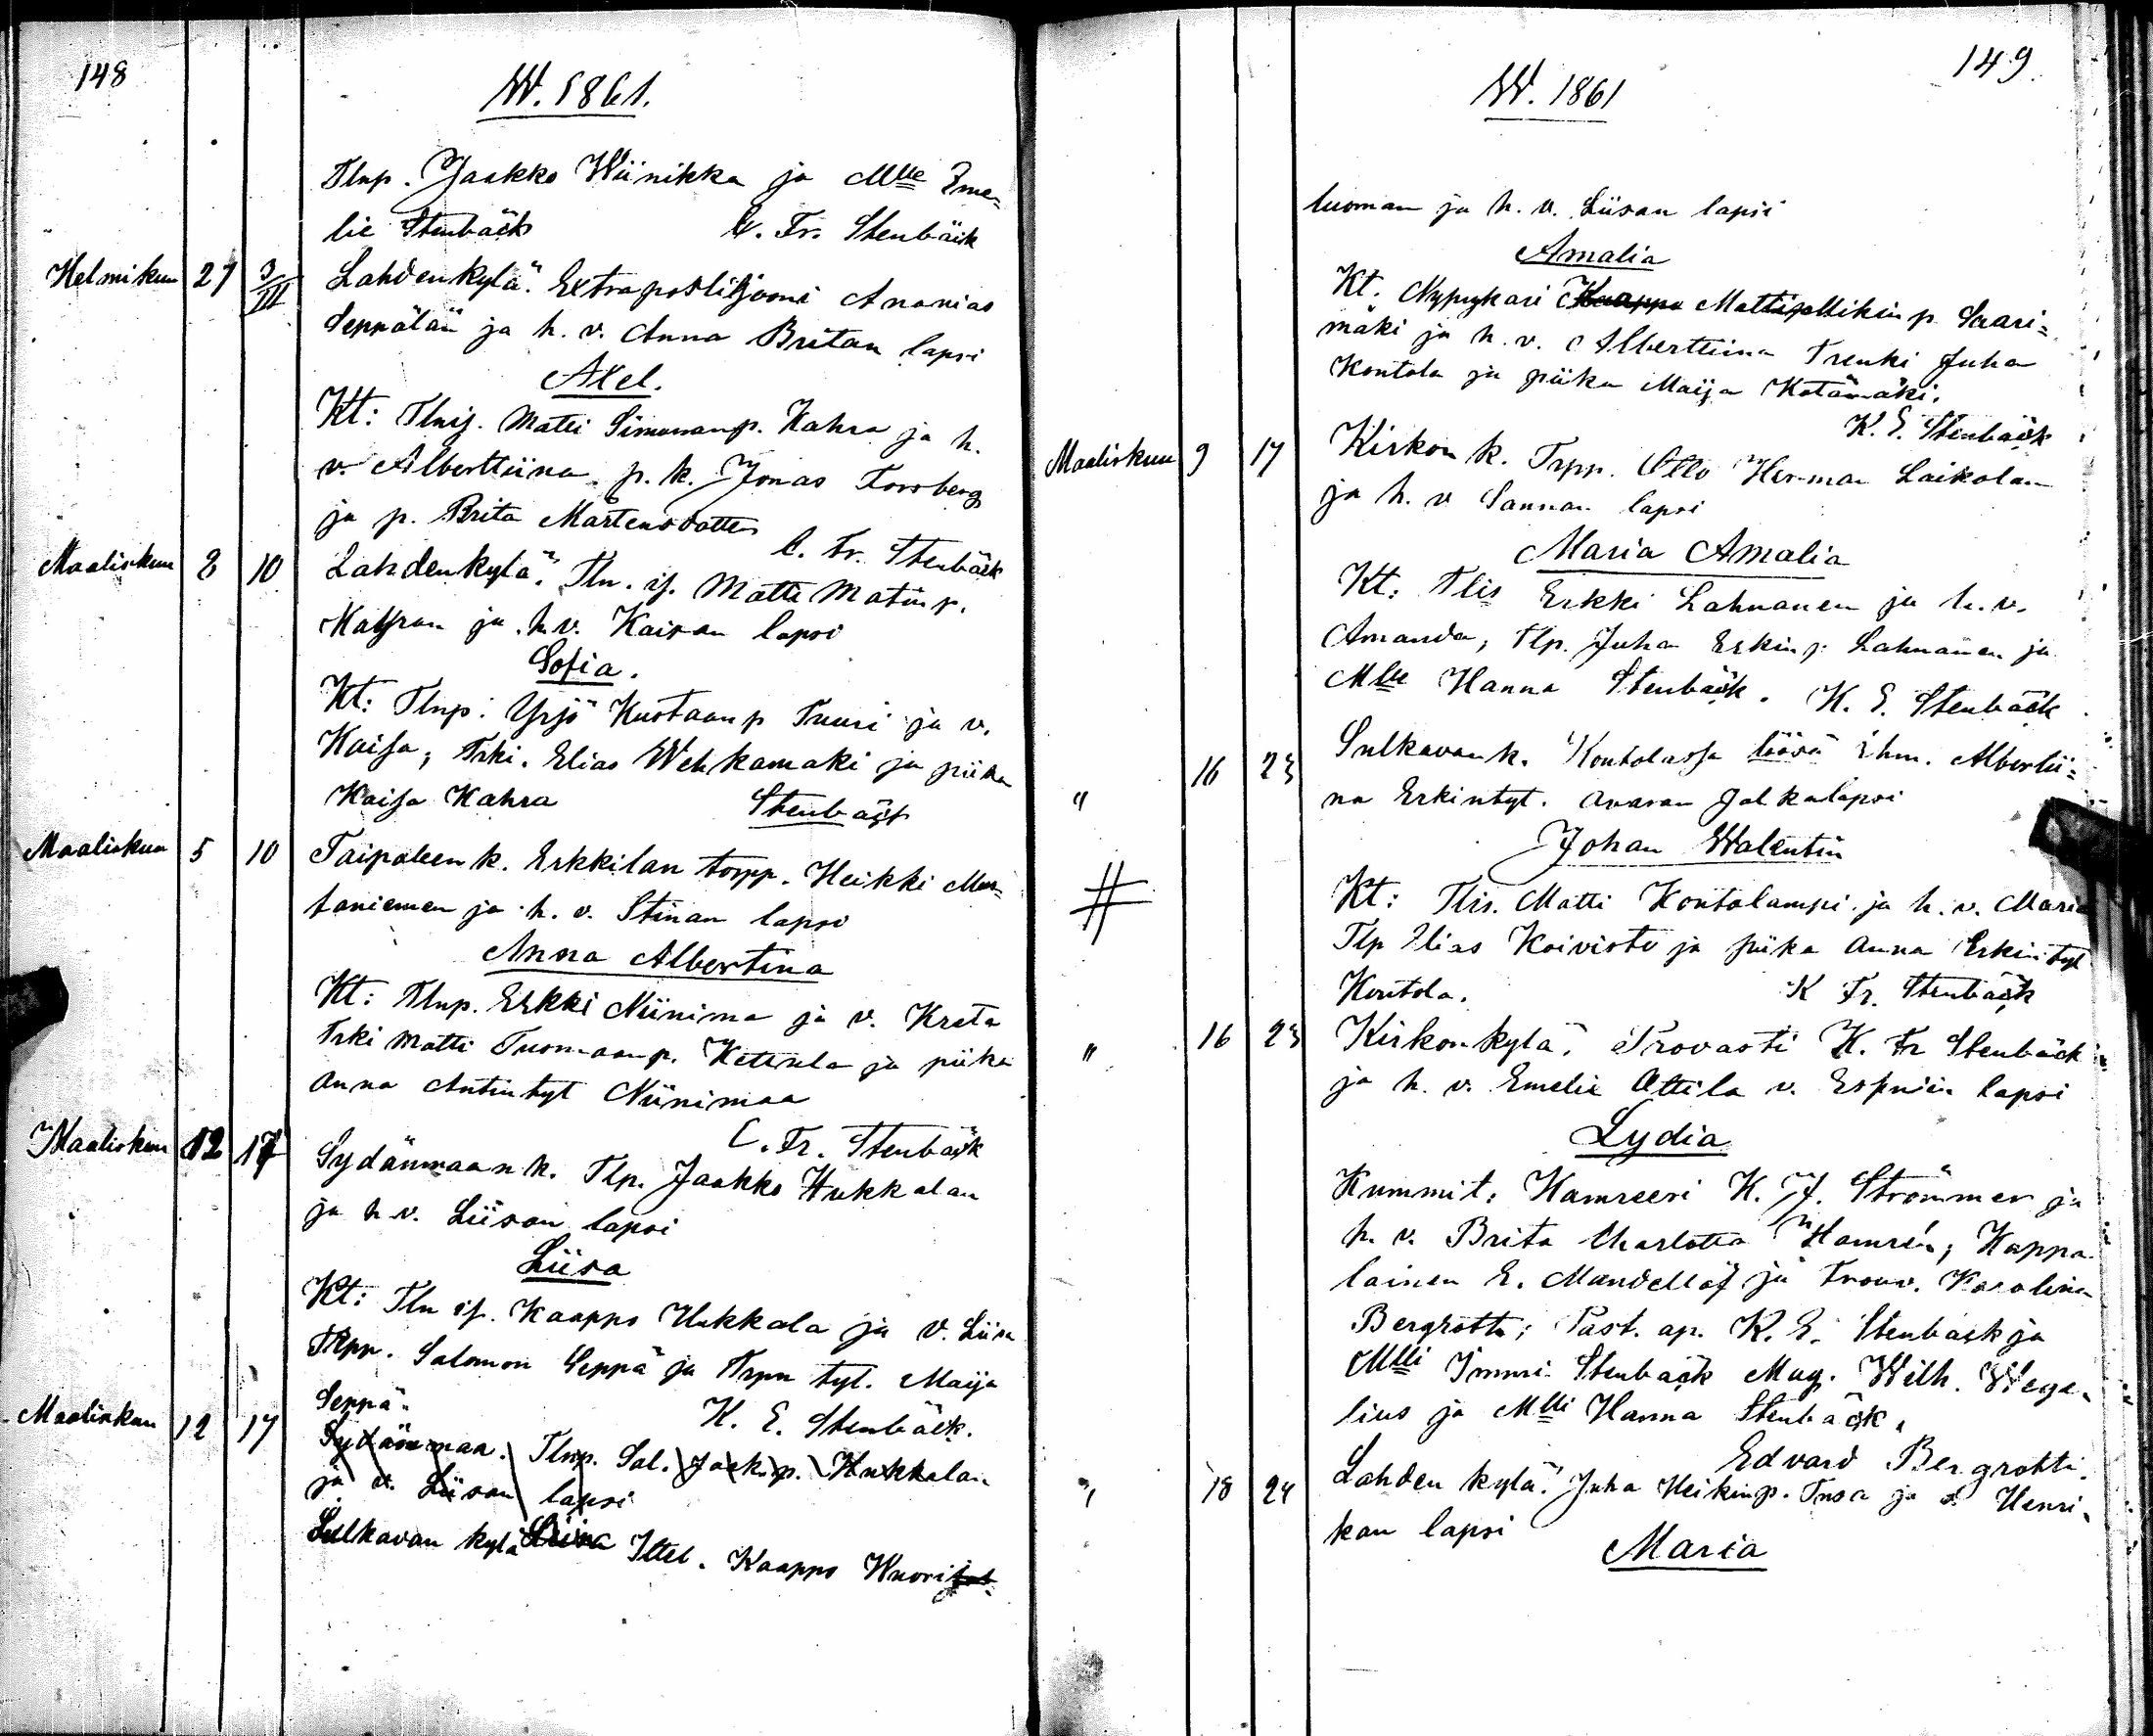 148
W. 1861.
Tlnp. Jaakko Wiinikka ja Mlle Eme-
lie Stenbäck C. Fr. Stenbäck
Helmikuu 27 3/III Lahdenkylä. Extrapostiljooni Ananias
Seppälän ja h. v. Anna Britan lapsi
Axel.
Kt: Tlnij. Matti Simonanp. Kahra ja h.
v. Alberttiina p. k. Jonas Forsberg
ja p. Brita Mårtensdotter
C. Fr. Stenbäck
Maaliskuu 8 10 Lahdenkylä. Tln. ij. Matti Matinp.
Kahran ja h. v. Kaisan lapsi
Sofia.
Kt: Tlnp. Yrjö Kustaanp Tuuri ja v.
Kaisa; Trki. Elias Wehkamaki ja piika
Kaisa Kahra Stenbäck
Maaliskuu 5 10 Taipaleen k. Erkkilan torpp. Heikki Mus-
taniemen ja h. v. Stinan lapsi
Anna Albertina
Kt: Tlnp. Erkki Niinima ja v. Kreta
Trki Matti Tuomaanp. Ketkula ja piika
Anna Antintyt Niinimaa
C. Fr. Stenbäck
Maaliskuu 12 17 Sydänmaan k. Tlp. Jaakko Hukkalan
ja h. v. Liisan lapsi
Liisa
Kt: Tln ij. Kaappo Hukkala ja v. Liisa
Trpp. Salomon Seppä ja Trpn tyt. Maija
Seppä. K. E. Stenbäck.
Maaliskuu 12 17 Sydänmaa. Tlnp. Sal. Jaak.p. Hukkalan
ja v. Liisan lapsi
Sulkavan kylä Liisa Ittel. Kaappo Wuori
149
W. 1861
luoman ja h. v. Liisan lapsi
Amalia
Kt. Nypykari Kaappo Matti Mikinp Saari-
mäki ja h. v. Alberttiina Trenki Juha
Kontola ja piika Maija Katämäki.
K. E. Stenbäck
Maaliskuu 9 17 Kirkon k. Trpp. Otto Herman Laikolan
ja h. v Sannan lapsi
Maria Amalia
Kt: Tlis Erkki Lahnanen ja h. v.
Amanda, Tlp. Juha Erkinp. Lahnanen ja
Mlle Hanna Stenbäck. K. E. Stenbäck
" 16 23 Sulkavan k. Kontolassa löövä Ihm. Albertii-
na Erkintyt. avaran Jalkalapsi
Johan Walentin
# Kt: Tlis. Matti Kontolampi ja h. v. Maria
Tlp Elias Koivisto ja piika Anna Erkintyt
Kontola. K Fr. Stenbäck
" 16 23 Kirkonkylä. Provasti K. Fr Stenbäck
ja h. v. Emelie Ottila v. Espnin lapsi
Lydia
Kummit: Kamreeri K. J. Strömmer ja
h. v. Brita Charlotta Hamrén, Kappa-
lainen E. Mandellöf ja Frouv. Karolina
Bergrotti; Past. ap. K. E. Stenbäck ja
Mlli Immi Stenbäck Mag. Wilh. Wege-
lius ja Mlli Hanna Stenbäck.
Edvard Bergrotti.
" 18 24 Lahden kylä. Juha Heikinp. Tusa ja v. Henri-
kan lapsi
Maria